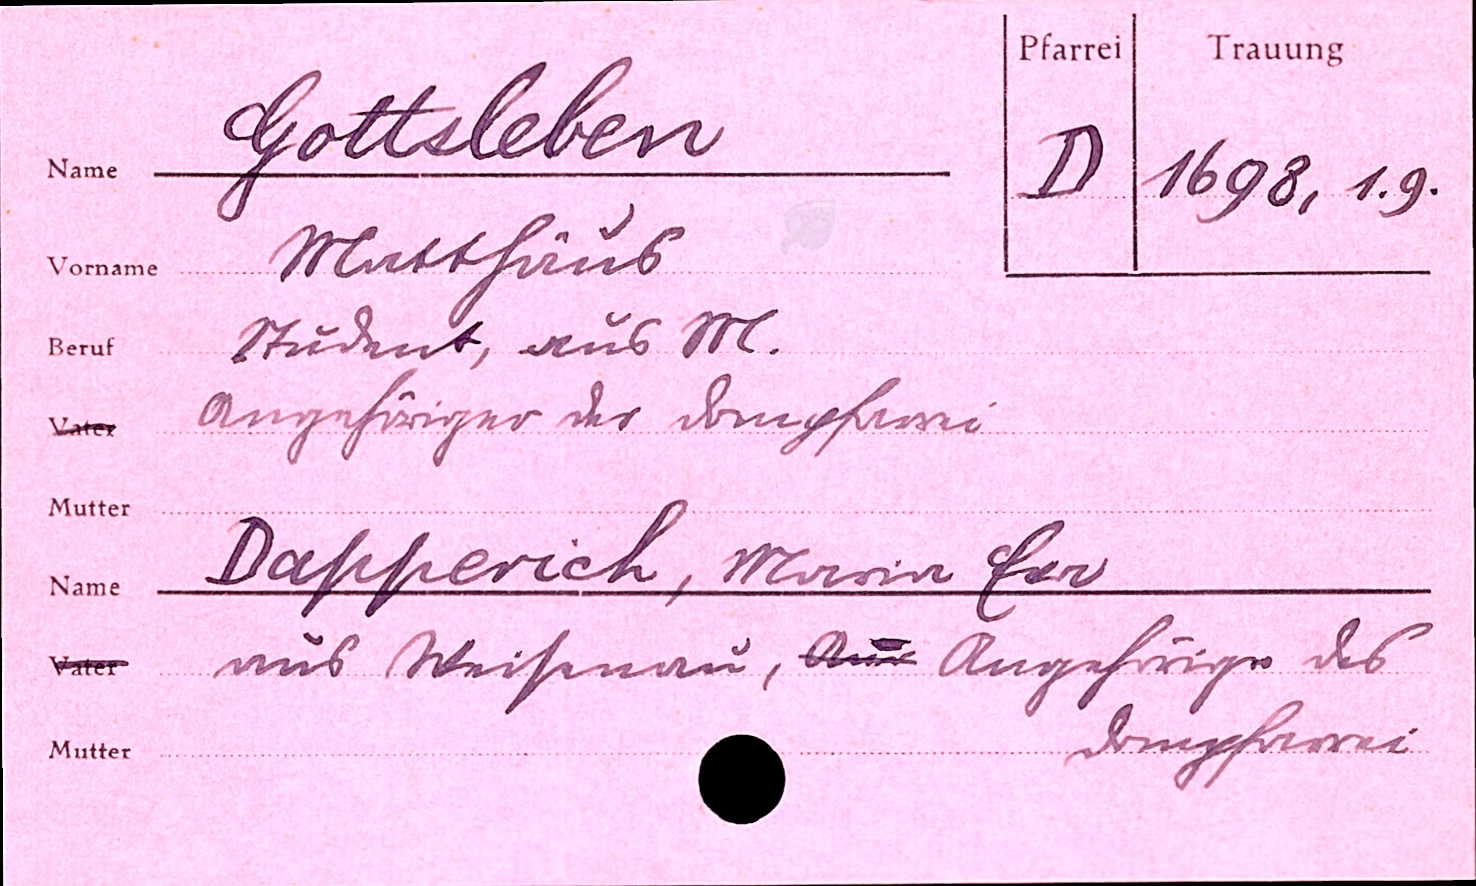 Pfarrei Trauung
Name Gottsleben
D 1698, 1.9.
Vorname Matthäus
Beruf Student, aus M.
Vater Angehöriger der Dompfarrei
Mutter
Name Dapperich, Maria Eva
Vater aus Weisenau, Aus Angehörige des
Mutter Dompfarrei